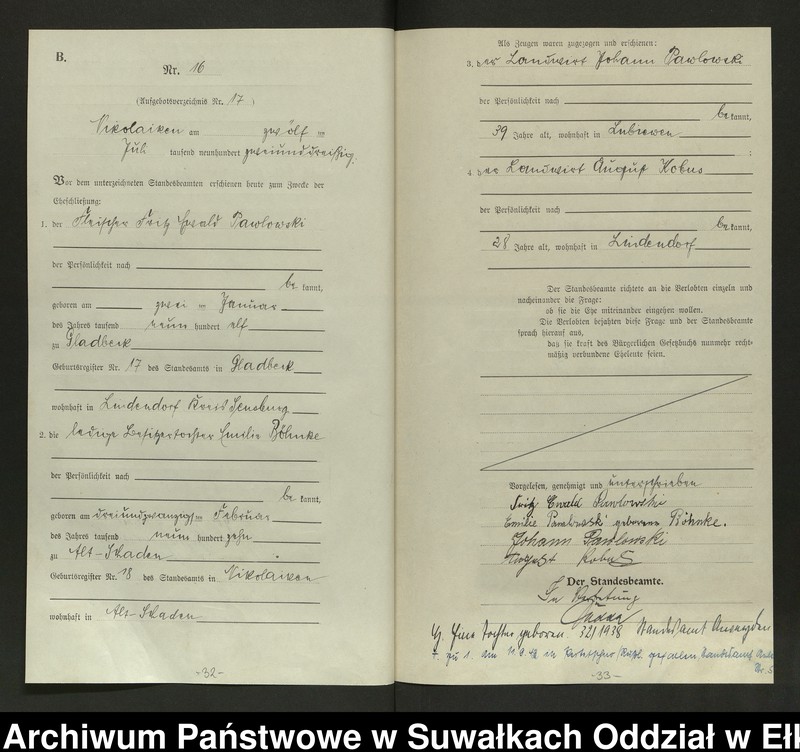 B.
Nr. 16
(Aufgebotsverzeichnis Nr. 17)
Nikolaiken am zwölf ten
Juli tausend neunhundert zweiunddreißig.
Vor dem unterzeichneten Standesbeamten erschienen heute zum Zwecke der
Eheschließung:
1. der Fleischer Fritz Ewald Pawlowski
der Persönlichkeit nach
be kannt,
geboren am zwei ten Januar
des Jahres tausend neun hundert elf
zu Gladbeck
Geburtsregister Nr. 17 des Standesamts in Gladbeck
wohnhaft in Lindendorf Kreis Sensburg
2. die ledige Besitzertochter Emilie Böhnke
der Persönlichkeit nach
be kannt,
geboren am dreiundzwanzigsten Februar
des Jahres tausend neun hundert zehn
zu Alt-Schaden
Geburtsregister Nr. 18 des Standesamts in Nikolaiken
wohnhaft in Alt-Schaden
-32-
Als Zeugen waren zugezogen und erschienen:
3. der Landwirt Johann Pawlowski
der Persönlichkeit nach
be kannt,
39 Jahre alt, wohnhaft in Lubiewen
4. der Landwirt August Kobus
der Persönlichkeit nach
be kannt,
28 Jahre alt, wohnhaft in Lindendorf
Der Standesbeamte richtete an die Verlobten einzeln und
nacheinander die Frage:
ob sie die Ehe miteinander eingehen wollen.
Die Verlobten bejahten diese Frage und der Standesbeamte
sprach hierauf aus,
daß sie kraft des Bürgerlichen Gesetzbuchs nunmehr recht-
mäßig verbundene Eheleute seien.
Vorgelesen, genehmigt und unterschrieben
Fritz Ewald Pawlowski
Emilie Pawlowski geborene Böhnke.
Johann Pawlowski
August Kobus
Der Standesbeamte.
In Vertretung
Eine Tochter geboren. 32/1938 Standesamt
zu 1. am gefallen Standesamt
-33-
Archiwum Państwowe w Suwałkach Oddział w Eł